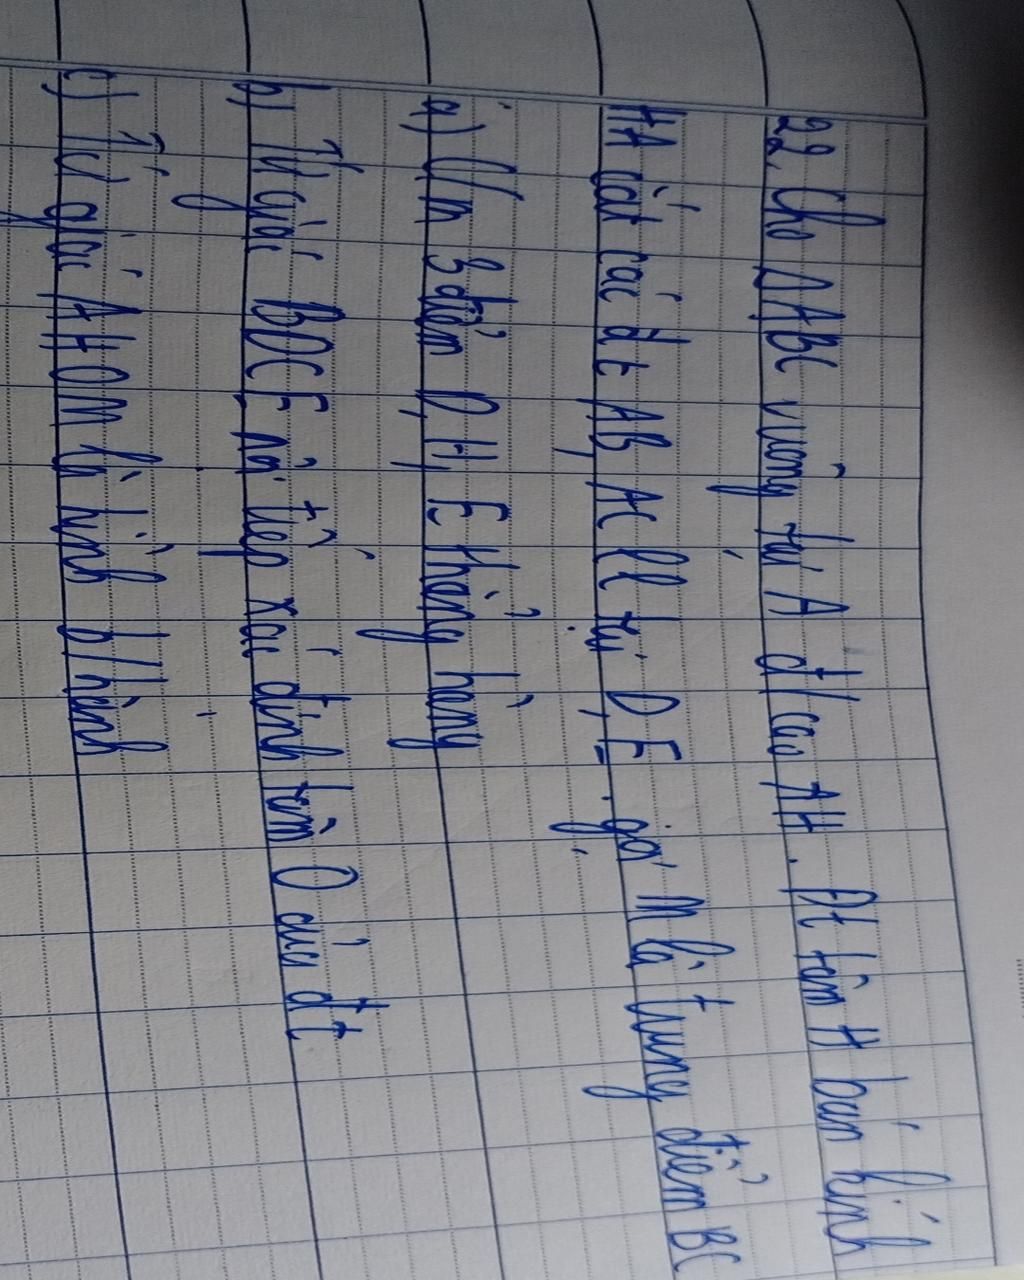 22, Cho ΔABC vuông tại A đ/cao AH. Đt tâm H bán kính
HA cắt các đt AB, AC ll tại D, E. gọi M là trung điểm BC
a) Cm 3 điểm D, H, E thẳng hàng
b) Tứ giác BDCE nội tiếp xác định tâm O của đt
c) Tứ giác AHOM là hình b/hành